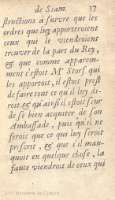 de Siam. 17
structions à suivre que les
ordres que luy apporteroient
ceux qui le viendroient
trouver de la part du Roy,
& que comme apparem-
ment c'estoit Mr Storf qui
les apportoit, il estoit prest
de faire tout ce qu'il luy di-
roit, & qu'ainsi il estoit seur
de se bien acquiter de son
Ambassade, puis qu'il ne
feroit que ce qui luy seroit
prescrit, & que s'il man-
quoit en quelque chose, la
faute viendroit de ceux qui